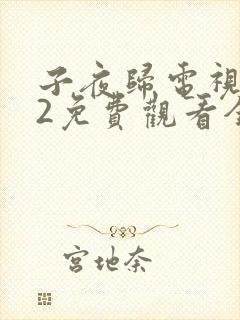 子夜歸電視
2免費觀看全
宮地奈